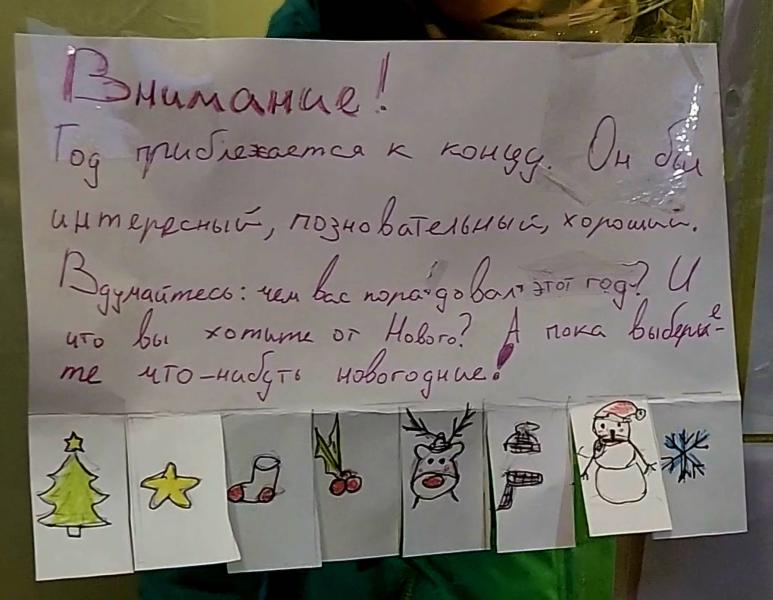 Внимание!
Год приближается к концу. Он был
интересный, позновательный, хороший.
Вдумайтесь: чем вас порадовал этот год? И
что вы хотите от Нового? А пока выбери-
те что-нибуть новогодние!